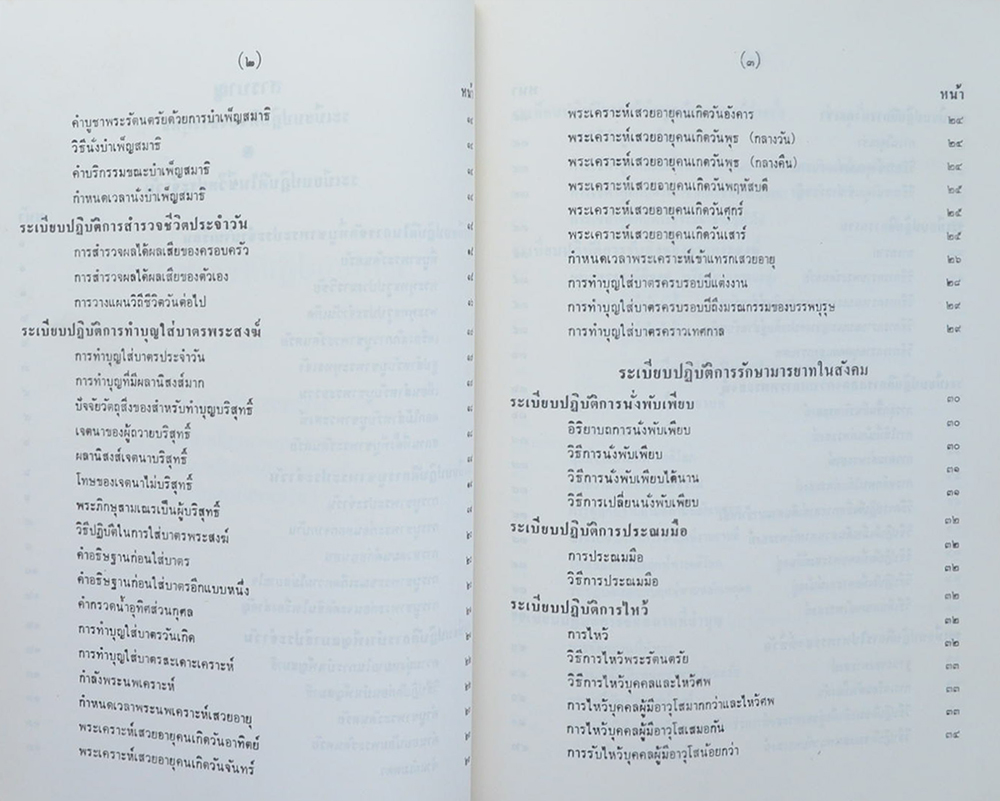 (๒)
คำบูชาพระรัตนตรัยด้วยการบำเพ็ญสมาธิ
วิธีนั่งบำเพ็ญสมาธิ
คำบริกรรมขณะบำเพ็ญสมาธิ
กำหนดเวลานั่งบำเพ็ญสมาธิ
ระเบียบปฏิบัติการสำรวจชีวิตประจำวัน
การสำรวจผลได้ผลเสียของครอบครัว
การสำรวจผลได้ผลเสียของตัวเอง
การวางแผนวิถีชีวิตวันต่อไป
ระเบียบปฏิบัติการทำบุญใส่บาตรพระสงฆ์
การทำบุญใส่บาตรประจำวัน
การทำบุญที่มีผลานิสงส์มาก
ปัจจัยวัตถุสิ่งของสำหรับทำบุญบริสุทธิ์
เจตนาของผู้ถวายบริสุทธิ์
ผลานิสงส์เจตนาบริสุทธิ์
โทษของเจตนาไม่บริสุทธิ์
พระภิกษุสามเณรเป็นผู้บริสุทธิ์
วิธีปฏิบัติในการใส่บาตรพระสงฆ์
คำอธิษฐานก่อนใส่บาตร
คำอธิษฐานก่อนใส่บาตรอีกแบบหนึ่ง
คำกรวดน้ำอุทิศส่วนกุศล
การทำบุญใส่บาตรวันเกิด
การทำบุญใส่บาตรสะเดาะเคราะห์
กำลังพระนพเคราะห์
กำหนดเวลาพระนพเคราะห์เสวยอายุ
พระเคราะห์เสวยอายุคนเกิดวันอาทิตย์
พระเคราะห์เสวยอายุคนเกิดวันจันทร์
(๓)
หน้า
พระเคราะห์เสวยอายุคนเกิดวันอังคาร ๒๔
พระเคราะห์เสวยอายุคนเกิดวันพุธ (กลางวัน) ๒๔
พระเคราะห์เสวยอายุคนเกิดวันพุธ (กลางคืน) ๒๔
พระเคราะห์เสวยอายุคนเกิดวันพฤหัสบดี ๒๕
พระเคราะห์เสวยอายุคนเกิดวันศุกร์ ๒๕
พระเคราะห์เสวยอายุคนเกิดวันเสาร์ ๒๕
กำหนดเวลาพระเคราะห์เข้าแทรกเสวยอายุ ๒๖
การทำบุญใส่บาตรครบรอบปีแต่งงาน ๒๘
การทำบุญใส่บาตรครบรอบปีถึงมรณกรรมของบรรพบุรุษ ๒๙
การทำบุญใส่บาตรคราวเทศกาล ๒๙
ระเบียบปฏิบัติการรักษามารยาทในสังคม
ระเบียบปฏิบัติการนั่งพับเพียบ ๓๐
อิริยาบถการนั่งพับเพียบ ๓๐
วิธีการนั่งพับเพียบ ๓๐
วิธีการนั่งพับเพียบได้นาน ๓๑
วิธีการเปลี่ยนนั่งพับเพียบ ๓๑
ระเบียบปฏิบัติการประณมมือ ๓๒
การประณมมือ ๓๒
วิธีการประณมมือ ๓๒
ระเบียบปฏิบัติการไหว้ ๓๒
การไหว้ ๓๒
วิธีการไหว้พระรัตนตรัย ๓๒
วิธีการไหว้บุคคลและไหว้ศพ ๓๓
การไหว้บุคคลผู้มีอาวุโสมากกว่าและไหว้ศพ ๓๓
การไหว้บุคคลผู้มีอาวุโสเสมอกัน ๓๓
การรับไหว้บุคคลผู้มีอาวุโสน้อยกว่า ๓๔